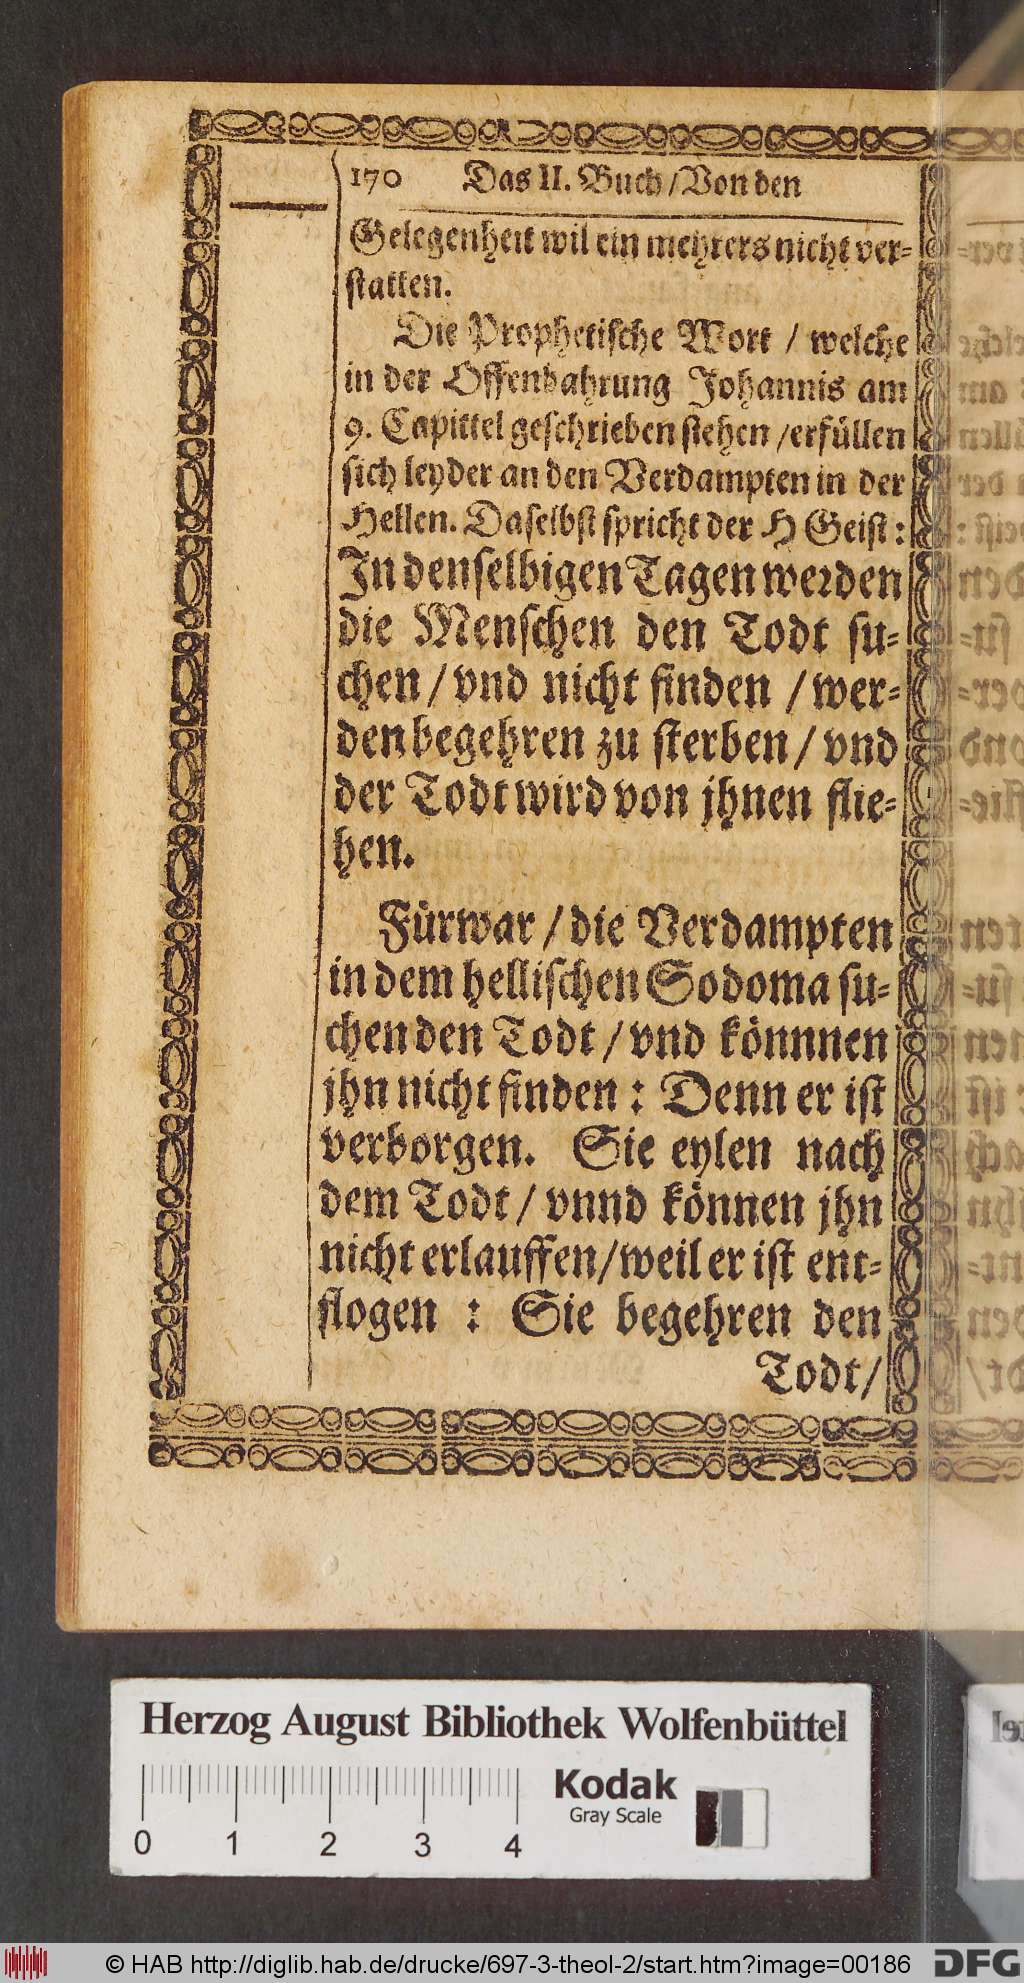 170 Das II. Buch / Von den
Gelegenheit wil ein mehrers nicht ver-
statten.
Die Prophetische Wort / welche
in der Offenbahrung Johannis am
9. Capittel geschrieben stehen / erfüllen
sich leyder an den Verdampten in der
Hellen. Daselbst spricht der H Geist :
In denselbigen Tagen werden
die Menschen den Todt su-
chen / vnd nicht finden / wer-
den begehren zu sterben / vnd
der Todt wird von jhnen flie-
hen.
Fürwar / die Verdampten
in dem hellischen Sodoma su-
chen den Todt / vnd könnnen
jhn nicht finden : Denn er ist
verborgen. Sie eylen nach
dem Todt / vnnd können jhn
nicht erlauffen / weil er ist ent-
flogen : Sie begehren den
Todt /
Herzog August Bibliothek Wolfenbüttel
Kodak
Gray Scale
0 1 2 3 4
© HAB http://diglib.hab.de/drucke/697-3-theol-2/start.htm?image=00186
DFG